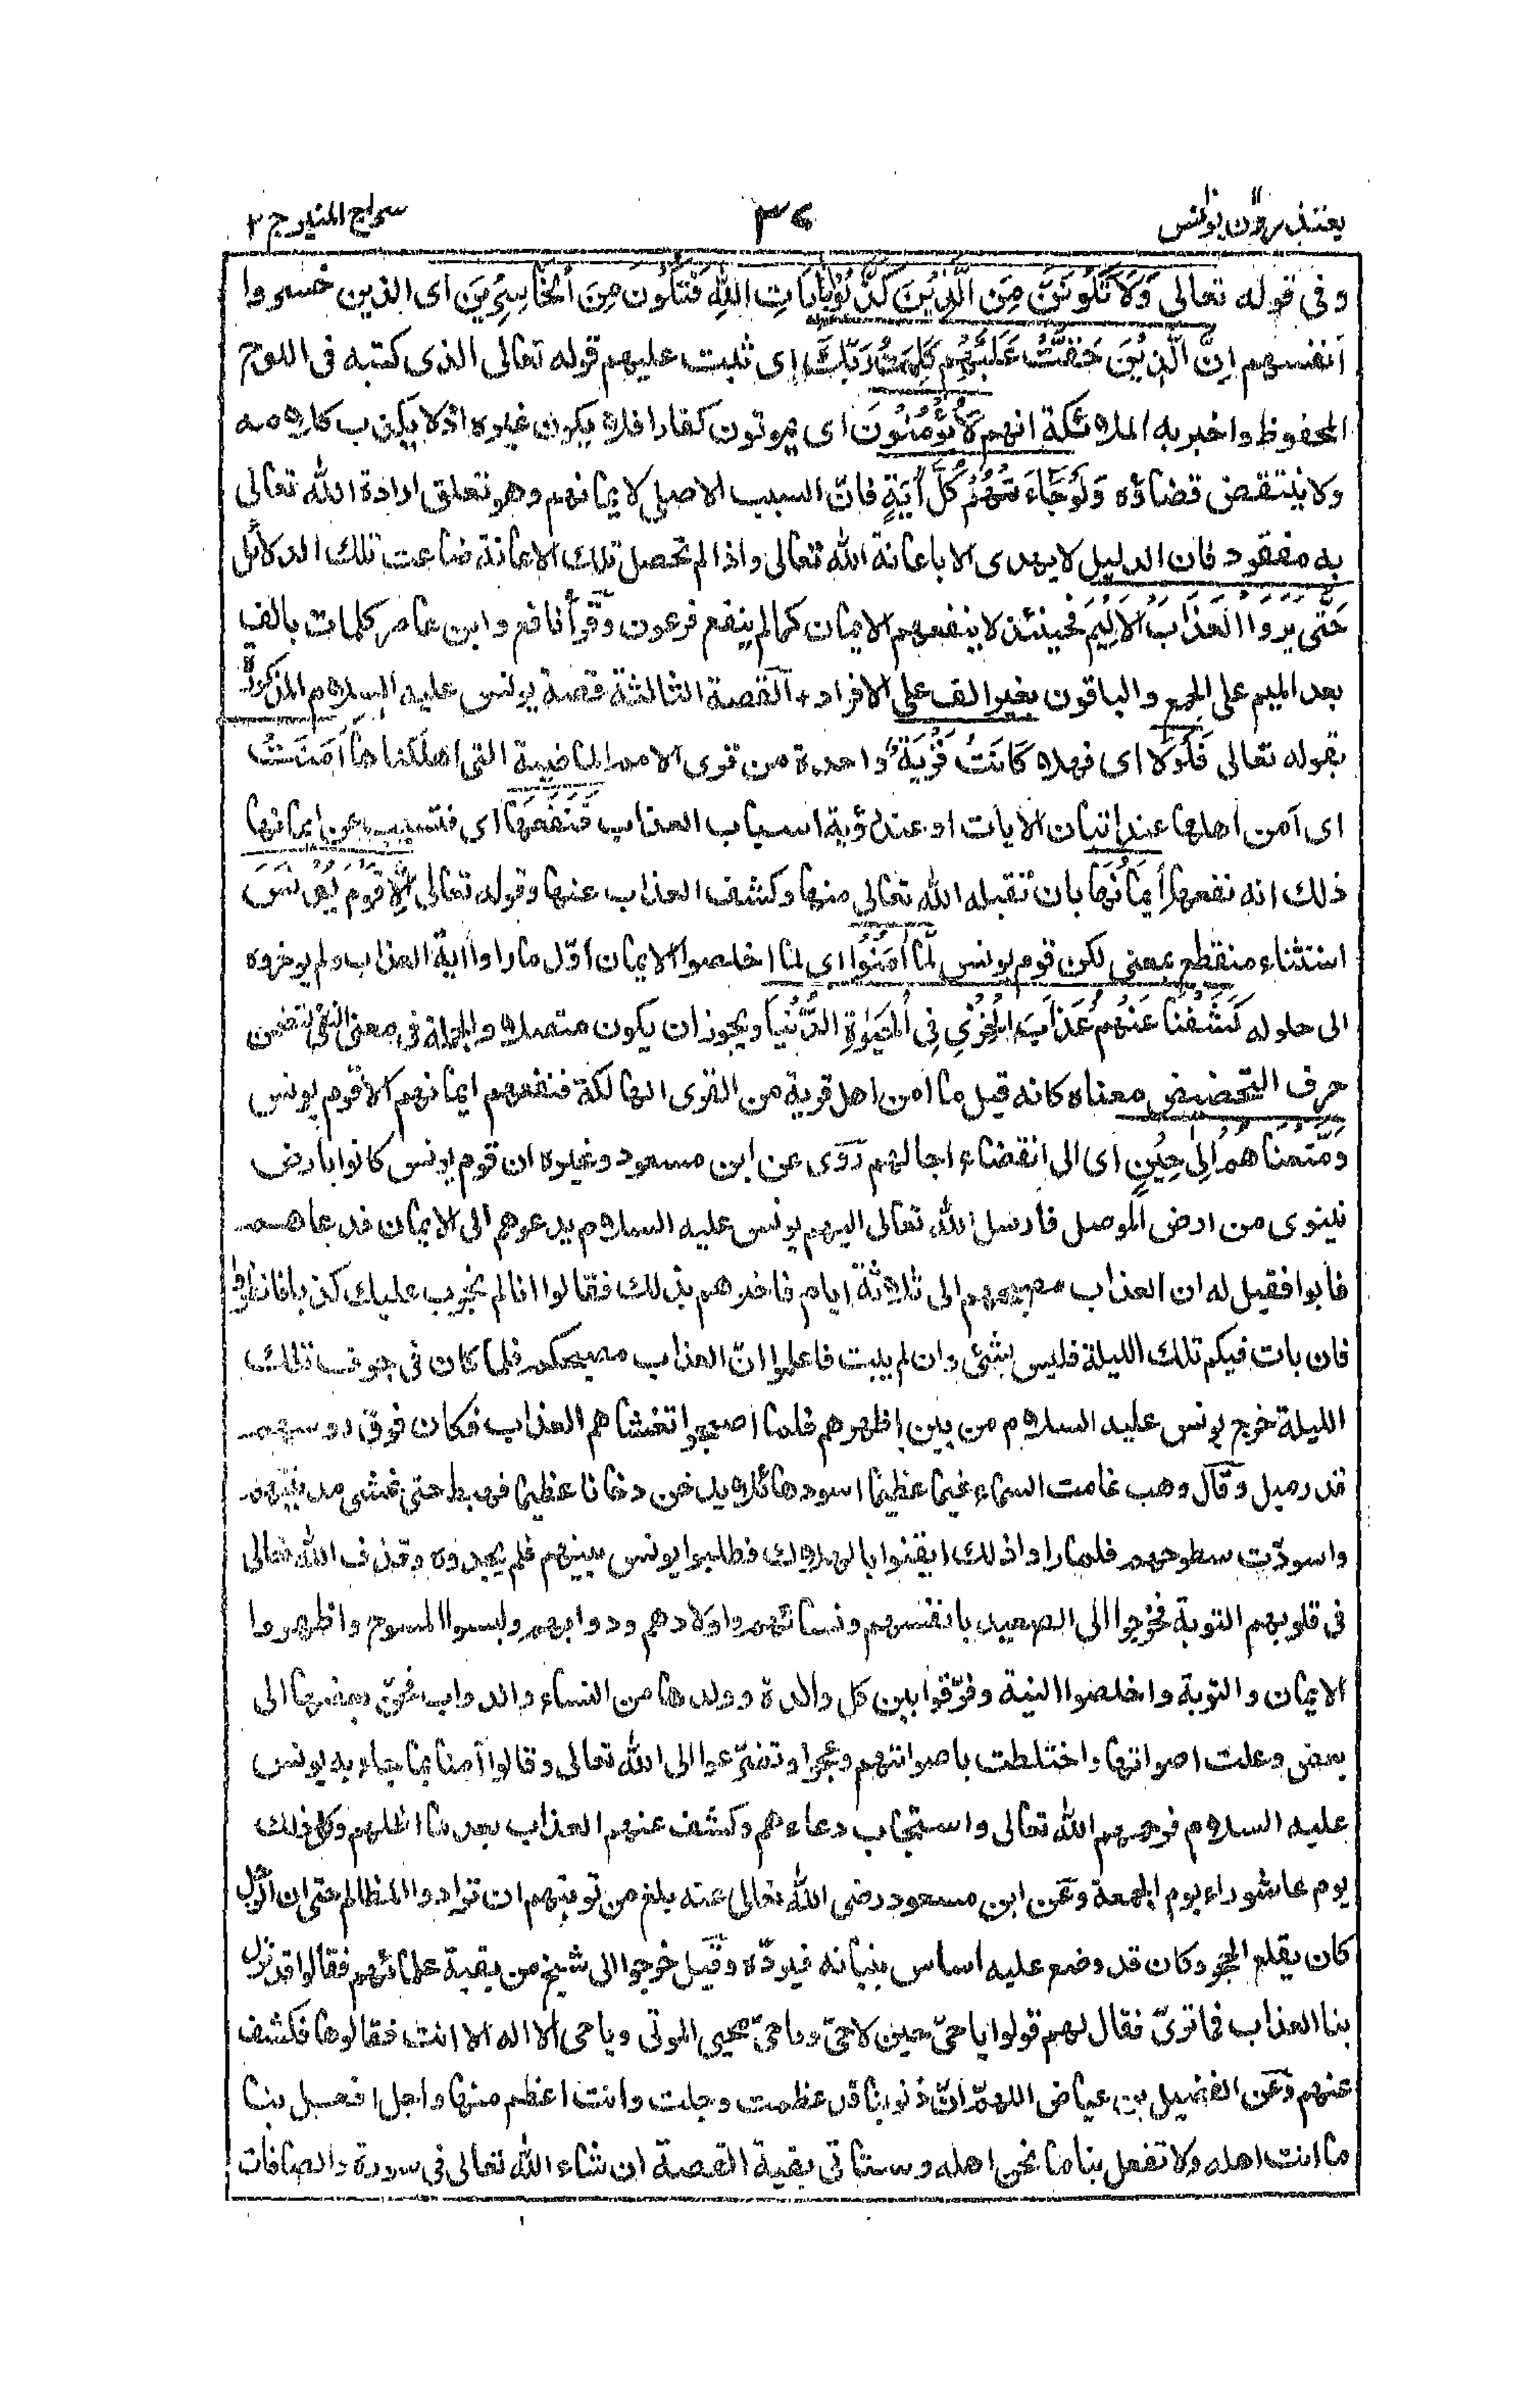 يعتذرون يونس ٣٤ سراج المنير ج ٢
وفى قوله تعالى وَلَا تَكُونَنَّ مِنَ الَّذِيْنَ كَذَّبُوْا بِاٰيَاتِ اللّٰهِ فَتَكُوْنَ مِنَ الْخَاسِرِيْنَ اى الذين خسروا
انفسهم اِنَّ الَّذِيْنَ حَقَّتْ عَلَيْهِمْ كَلِمَتُ رَبِّكَ اى ثبت عليهم قوله تعالى الذى كتبه فى اللوح
المحفوظ واخبر به الملائكة انهم لَا يُؤْمِنُوْنَ اى يموتون كفارا فلا يكون غيره اذ لا يكذب كلامه
ولا ينتقض قضاؤه وَلَوْ جَاءَتْهُمْ كُلُّ اٰيَةٍ فانّ السبب الاصلى لايمانهم وهو تعلق ارادة الله تعالى
به مفقود فان الدليل لا يهدى الا باعانة الله تعالى واذا لم تحصل تلك الاعانة ضاعت تلك الدلائل
حَتّٰى يَرَوُا الْعَذَابَ الْاَلِيْمَ فحينئذ لا ينفعهم الايمان كما لم ينفع فرعون وقرأ نافع وابن عامر كلمات بالف
بعد الميم على الجمع والباقون بغير الف على الافراد + القصة الثالثة قصة يونس عليه السلام المذكورة
بقوله تعالى فَلَوْلَا اى فهلا كَانَتْ قَرْيَةٌ واحدة من قرى الامم الماضية التى اهلكناها اٰمَنَتْ
اى آمن اهلها عند اتيان الايات او عند رؤية اسباب العذاب فَنَفَعَهَا اى فتسبب عن ايمانها
ذلك انه نفعها اِيْمَانُهَا بان تقبله الله تعالى منها وكشف العذاب عنها وقوله تعالى اِلَّا قَوْمَ يُوْنُسَ
استثناء منقطع بمعنى لكن قوم يونس لَمَّا اٰمَنُوْا اى لما اخلصوا الايمان اوّل ما راوا اية العذاب ولم يوخروه
الى حلوله كَشَفْنَا عَنْهُمْ عَذَابَ الْخِزْيِ فِي الْحَيٰوةِ الدُّنْيَا ويجوز ان يكون متصلا والجملة فى معنى النفى لتضمن
حرف التحضيض معناه كانه قيل ما امن اهل قرية من القرى الهالكة فنفعهم ايمانهم الا قوم يونس
وَمَتَّعْنَاهُمْ اِلٰى حِيْنٍ اى الى انقضاء اجالهم روى عن ابن مسعود وغيره ان قوم يونس كانوا بارض
نينوى من ارض الموصل فارسل الله تعالى اليهم يونس عليه السلام يدعوهم الى الايمان فدعاهم
فأبوا فقيل له ان العذاب مصبحهم الى ثلاثة ايام فاخبرهم بذلك فقالوا انا لم نجرب عليك كذبا فانظروا
فان بات فيكم تلك الليلة فليس بشئ وان لم يبت فاعلموا انّ العذاب مصبحكم فلما كان فى جوف تلك
الليلة خرج يونس عليه السلام من بين اظهرهم فلما اصبحوا تغشاهم العذاب فكان فوق روسهم
قدر ميل وقال وهب غامت السماء غيما عظيما اسود هائلا يدخن دخانا عظيما فهبط حتى غشى مدينتهم
واسودّت سطوحهم فلما راوا ذلك ايقنوا بالهلاك فطلبوا يونس نبيهم فلم يجدوه وقذف الله تعالى
فى قلوبهم التوبة فخرجوا الى الصعيد بانفسهم ونسائهم واولادهم ودوابهم ولبسوا المسوح واظهروا
الايمان والتوبة واخلصوا النية وفرّقوا بين كل والدة وولدها من النساء والدواب فحنّ بعضها الى
بعض وعلت اصواتها واختلطت باصواتهم وعجوا وتضرّعوا الى الله تعالى وقالوا آمنا بما جاء به يونس
عليه السلام فرحمهم الله تعالى واستجاب دعاءهم وكشف عنهم العذاب بعد ما اظلهم وكان ذلك
يوم عاشوراء يوم الجمعة وعن ابن مسعود رضى الله تعالى عنه بلغ من توبتهم ان ترادوا المظالم حتى ان الرجل
كان يقلع الحجر وكان قد وضع عليه اساس بنيانه فيردّه وقيل خرجوا الى شيخ من بقية علمائهم فقالوا قد نزل
بنا العذاب فما ترىٰ فقال لهم قولوا ياحىّ حين لاحىّ وياحىّ محيى الموتى وياحى لا اله الا انت فقالوها فكشف
عنهم وعن الفضيل بن عياض اللهمّ انّ ذنوبنا قد عظمت وجلت وانت اعظم منها واجل افعل بنا
ما انت اهله ولا تفعل بنا ما نحن اهله وستاتى بقية القصة ان شاء الله تعالى فى سورة والصافات